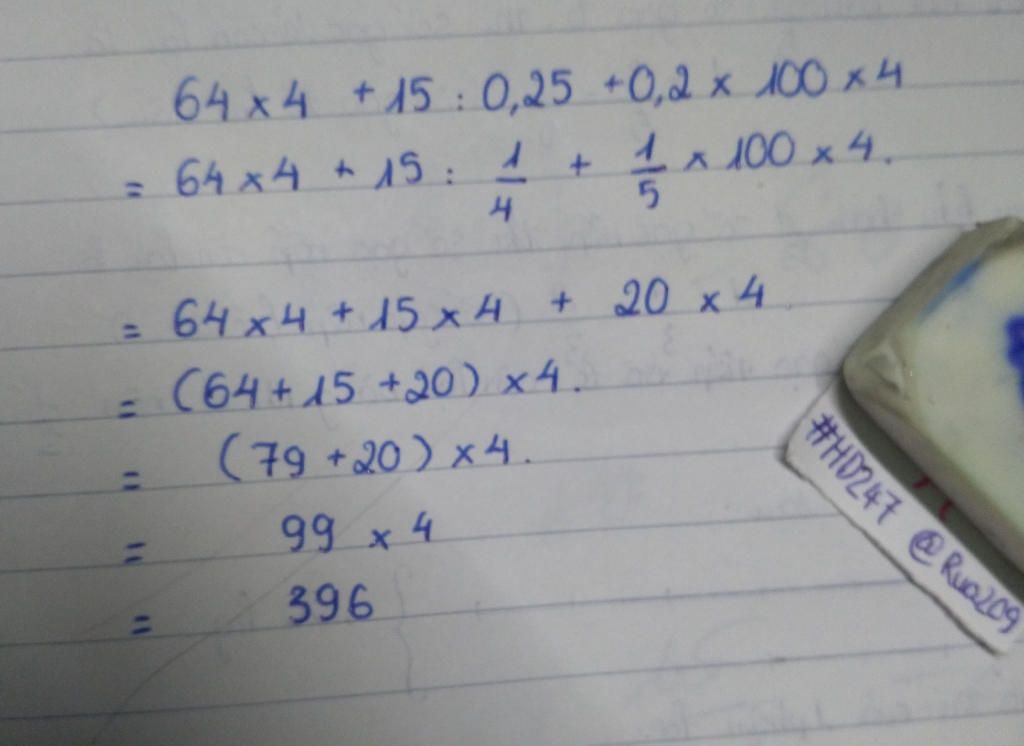 64 x 4 + 15 : 0,25 + 0,2 x 100 x 4
= 64 x 4 + 15 : 1/4 + 1/5 x 100 x 4.
= 64 x 4 + 15 x 4 + 20 x 4
= (64 + 15 + 20) x 4.
= (79 + 20) x 4.
= 99 x 4
= 396
#HD247 @Rua209